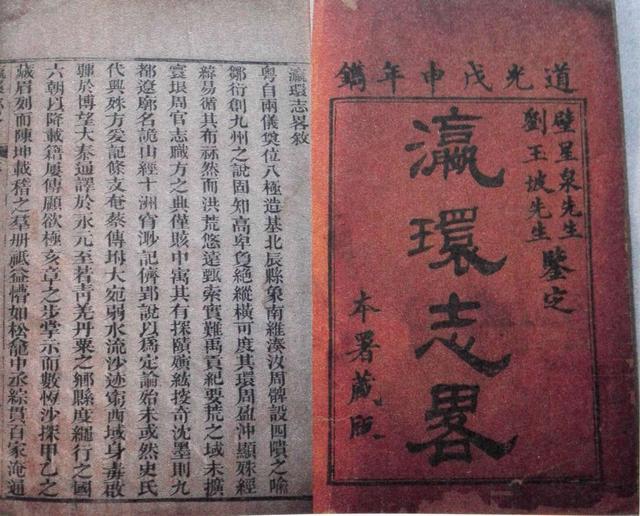 道光戊申年鐫
璧星泉先生
劉玉坡先生
鑒定
瀛環志畧
本署藏版
瀛環志畧敘
粤自兩儀奠位八極造基北辰縣象南維湊汝周髀設四隤之喻
鄒衍創九州之說固知高卑負絕縱橫可度其環周盈沖顯殊經
緯易循其布然而洪荒悠遠甄索實難禹貢紀要荒之域未擴
寰垠周官志職方之典僅賅中寓其有探賾紘掞奇沈墨則九
都遼廓名詭山經十洲渺記儕郢說以爲定論始未或然史氏
代興殊方爰記條支奄蔡傳坿大宛弱水流沙迹窮西域身毒啟
於博望大秦通譯於永元至若青羌丹粟之鄕縣度繩行之國
六朝以降載籍屢傳顧欲極亥章之步掌示而數恆沙探甲乙之
藏眉列而陳坤載稽之羣册祇益懵如松龕中丞綜貫百家淹通